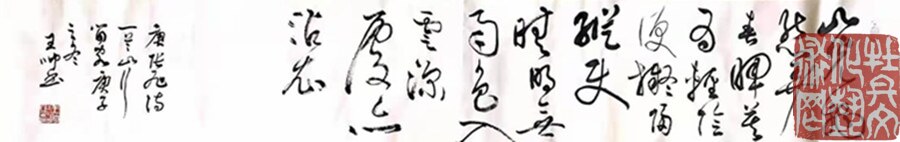 山光物
態弄
春暉莫
為輕陰
便擬歸
縱使
晴明無
雨色入
雲深
處亦
沾衣
唐張旭詩
一首山行
留客庚子
之冬